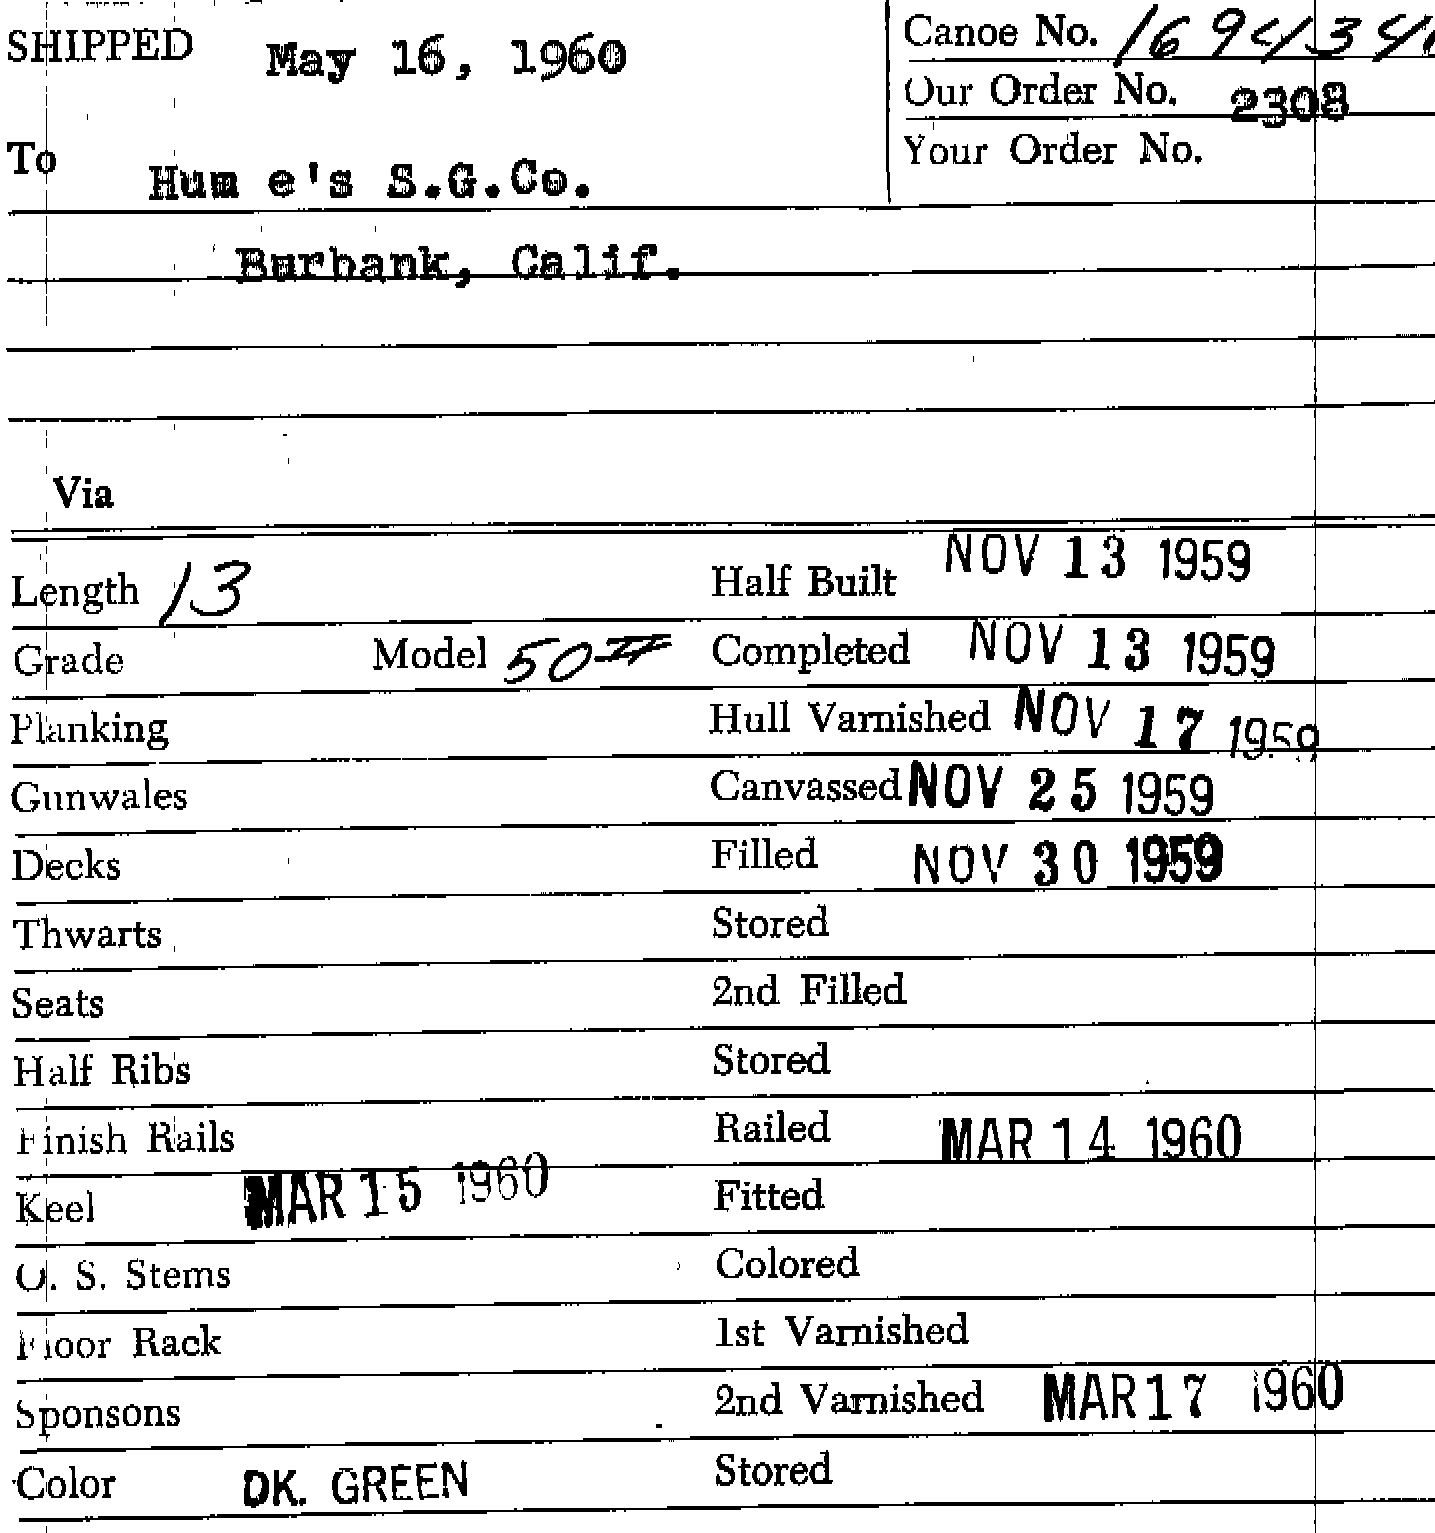 SHIPPED May 16, 1960
Canoe No.
Our Order No. 2308
Your Order No.
To Hum e's S.G.Co.
Burbank, Calif.
Via
Length 13 Half Built NOV 13 1959
Grade Model 50# Completed NOV 13 1959
Planking Hull Varnished NOV 17 1959
Gunwales Canvassed NOV 25 1959
Decks Filled NOV 30 1959
Thwarts Stored
Seats 2nd Filled
Half Ribs Stored
Finish Rails Railed MAR 14 1960
Keel MAR 15 1960 Fitted
O. S. Stems Colored
Floor Rack 1st Varnished
Sponsons 2nd Varnished MAR 17 1960
Color DK. GREEN Stored